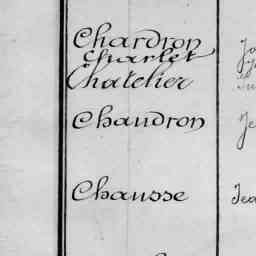 Chardron
Charlet
Chatelier
Chaudron
Chausse